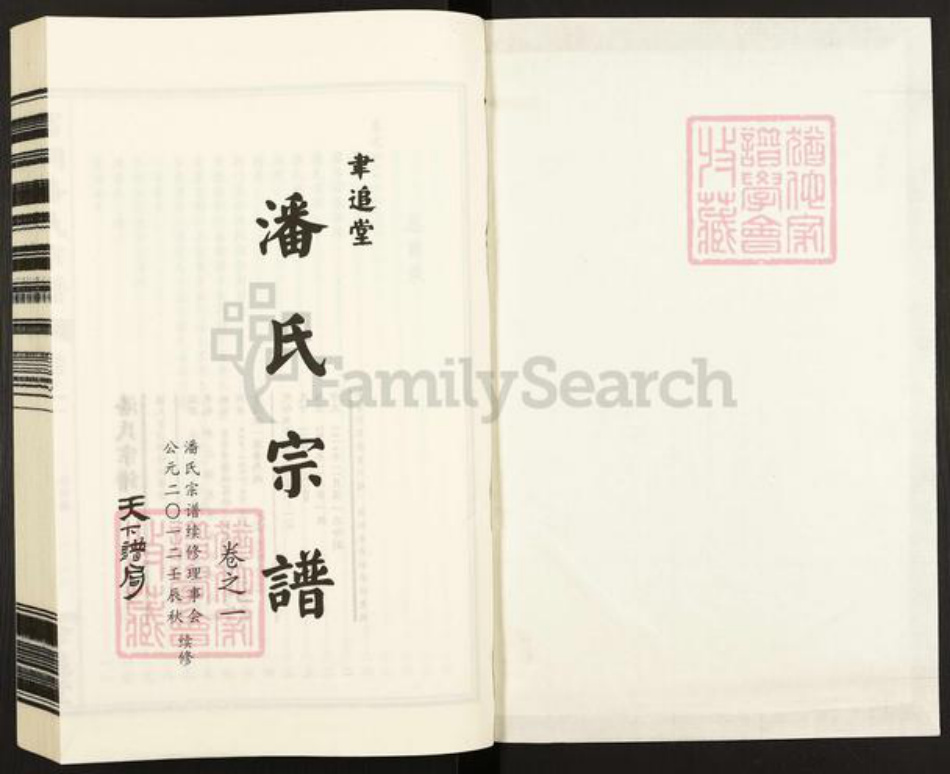 聿追堂
潘氏宗譜
卷之一
潘氏宗谱续修理事会
公元二〇一二壬辰秋
续修
天下譜局
FamilySearch
猶他家
譜學會
收藏